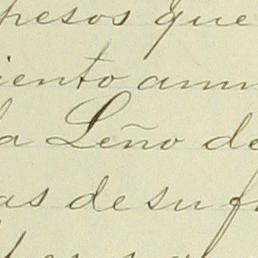 pesos que
iento anu
la Leño de
as de su f